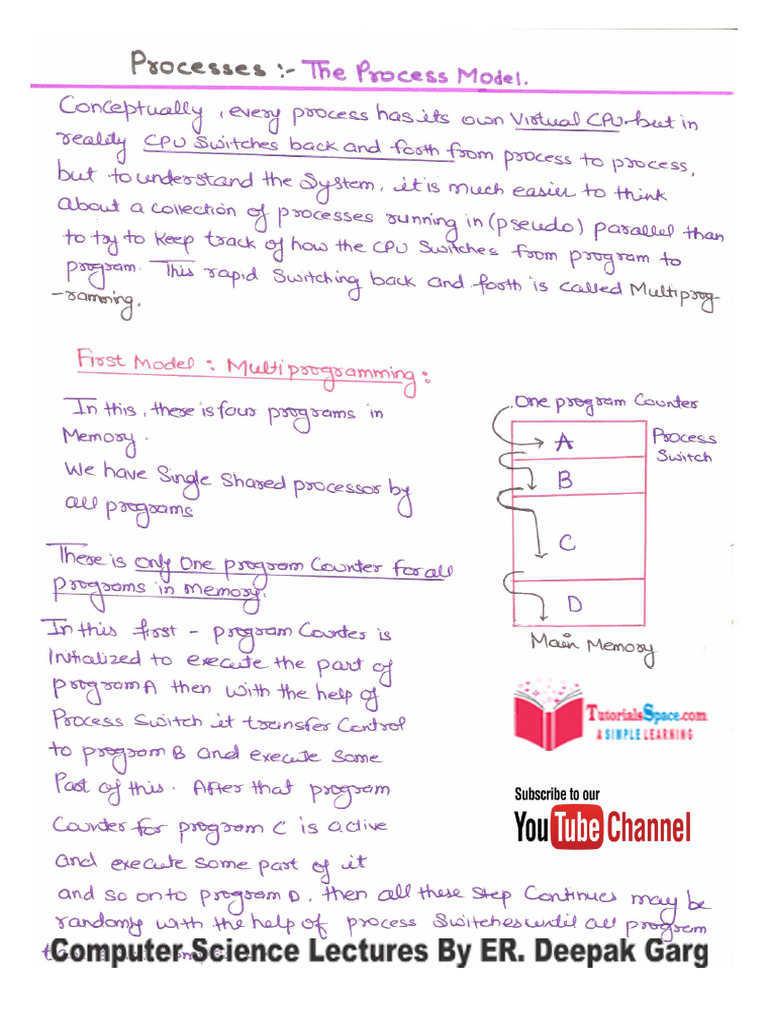 Processes :- The Process Model.
Conceptually, every process has its own Virtual CPU but in
reality CPU Switches back and forth from process to process,
but to understand the System, it is much easier to think
about a collection of processes running in (pseudo) parallel than
to try to keep track of how the CPU Switches from program to
program. This rapid Switching back and forth is called Multiprog-
-ramming.
First Model : Multiprogramming :
In this, there is four programs in
Memory.
We have Single Shared processor by
all programs
There is only One program Counter for all
programs in memory.
In this first - program Counter is
initialized to execute the part of
program A then with the help of
Process Switch it transfer Control
to program B and execute some
Part of this. After that program
Counter for program C is active
and execute some part of it
and so on to program D, then all these step Continues may be
randomly with the help of process Switches until all program
One program Counter
A
Process
Switch
B
C
D
Main Memory
TutorialsSpace.com
A SIMPLE LEARNING
Subscribe to our
YouTube Channel
Computer Science Lectures By ER. Deepak Garg